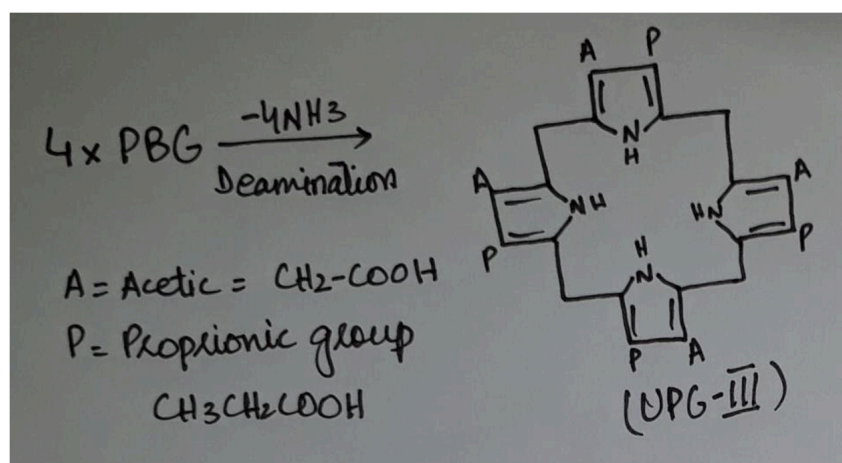 4x PBG
-4NH3
Deamination
A = Acetic = CH2-COOH
P = Proprionic group
CH3CH2COOH
A P
N
H
A
NH
P
A
HN
P
H
N
P A
(UPG-III)